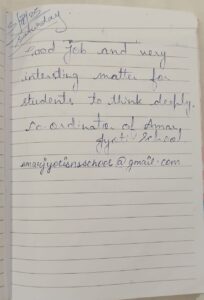 Saturday
Good job and very
interesting matter for
students to think deeply.
co-ordinator of Amar
Jyoti School
amarjyotiansschool@gmail.com